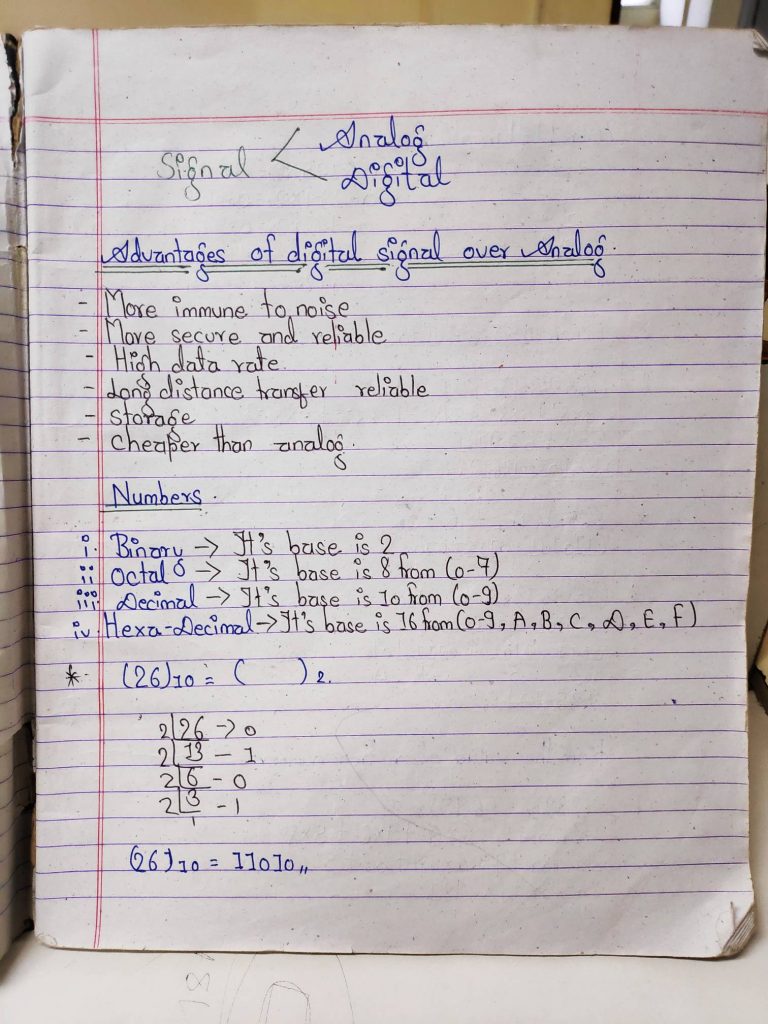 Signal < Analog
Digital
Advantages of digital signal over Analog.
- More immune to noise
- More secure and reliable
- High data rate.
- Long distance transfer reliable
- Storage
- Cheaper than analog.
Numbers.
i. Binary → It's base is 2
ii Octal → It's base is 8 from (0-7)
iii Decimal → It's base is 10 from (0-9)
iv Hexa-Decimal → It's base is 16 from (0-9, A, B, C, D, E, F)
* (26)10 = ( )2.
2 26 → 0
2 13 - 1
2 6 - 0
2 3 - 1
1
(26)10 = 11010,,